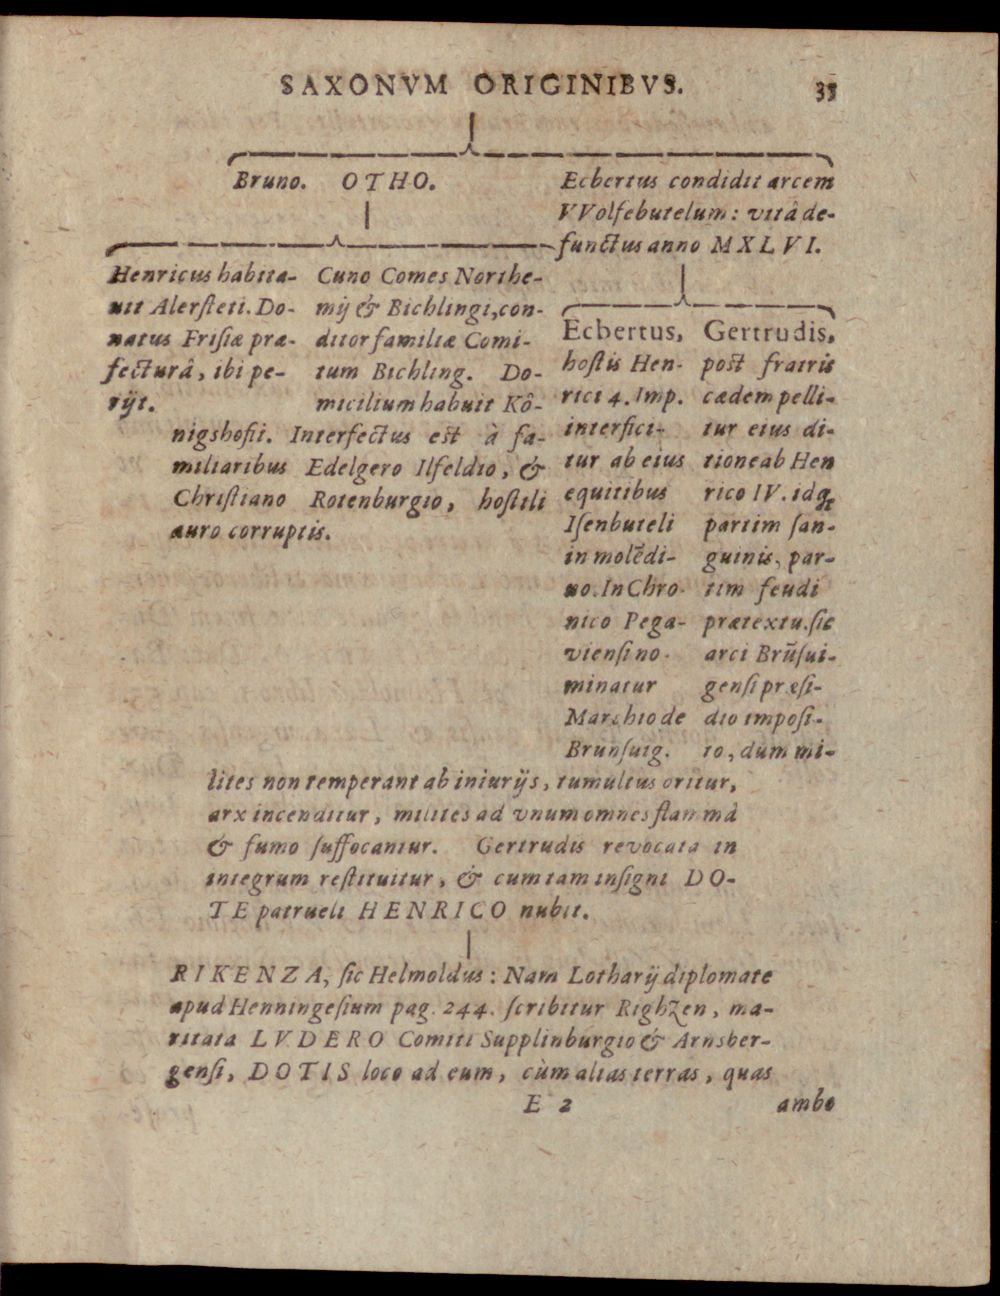 SAXONVM ORIGINIBVS. 35
Bruno. OTHO.
Ecbertus condidit arcem
VVolfebutelum: vitâ de-
functus anno MXLVI.
Henricus habita-
uit Alersleti. Do-
natus Frisiæ præ-
fecturâ, ibi pe-
rijt.
Cuno Comes Northe-
mij & Bichlingi, con-
ditor familiæ Comi-
tum Bichling. Do-
micilium habuit Kô-
nigshofii. Interfectus est à fa-
miliaribus Edelgero Ilfeldio, &
Christiano Rotenburgio, hostili
auro corruptis.
Ecbertus,
hostis Hen-
rici 4. Imp.
interfici-
tur ab eius
equitibus
Isenbuteli
in molẽdi-
no. In Chro-
nico Pega-
viensi no-
minatur
Marchio de
Brunsuig.
Gertrudis,
post fratris
cædem pelli-
tur eius di-
tione ab Hen
rico IV. idq́;
partim san-
guinis, par-
tim feudi
prætextu. sic
arci Brũsui-
gensi præsi-
dio imposi-
to, dum mi-
lites non temperant ab iniurijs, tumultus oritur,
arx incenditur, milites ad vnum omnes flammâ
& fumo suffocantur. Gertrudis revocata in
integrum restituitur, & cum tam insigni DO-
TE patrueli HENRICO nubit.
RIKENZA, sic Helmoldus: Nam Lotharij diplomate
apud Henningesium pag. 244. scribitur Righzen, ma-
ritata LVDERO Comiti Supplinburgio & Arnsber-
gensi, DOTIS loco ad eum, cùm alias terras, quas
E 2 ambo